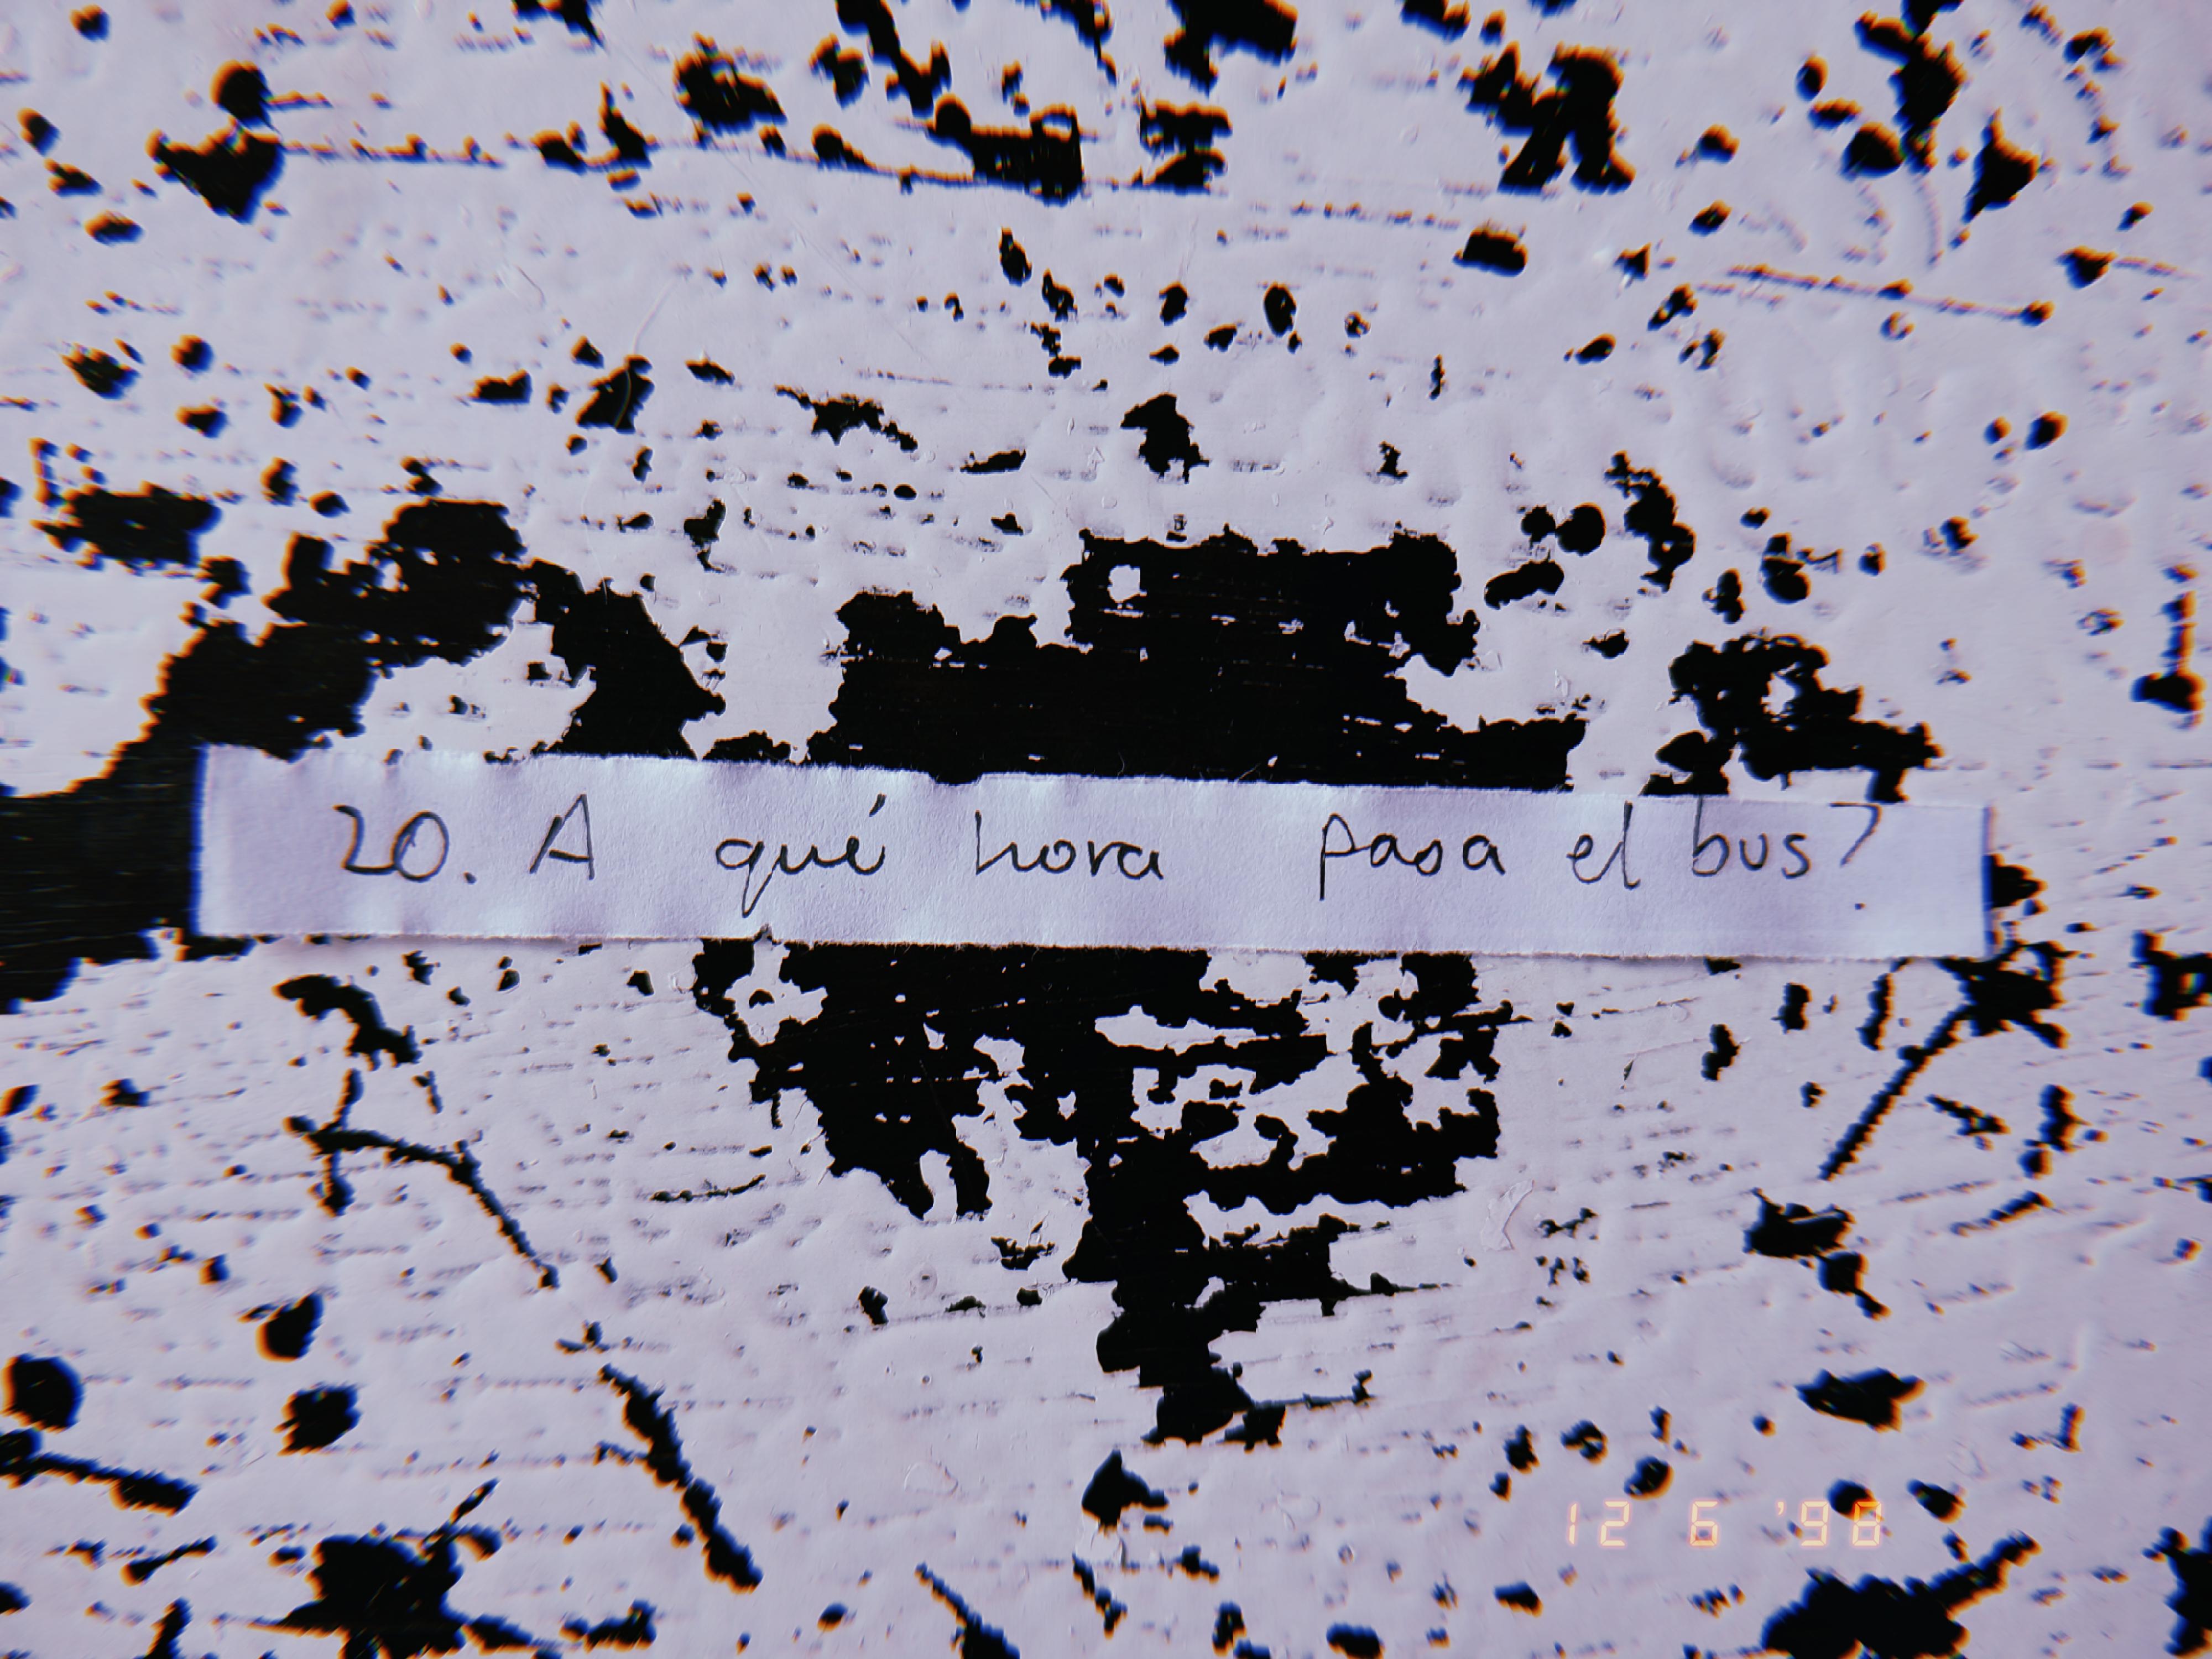 20. A qué hora pasa el bus?
12 6 '98